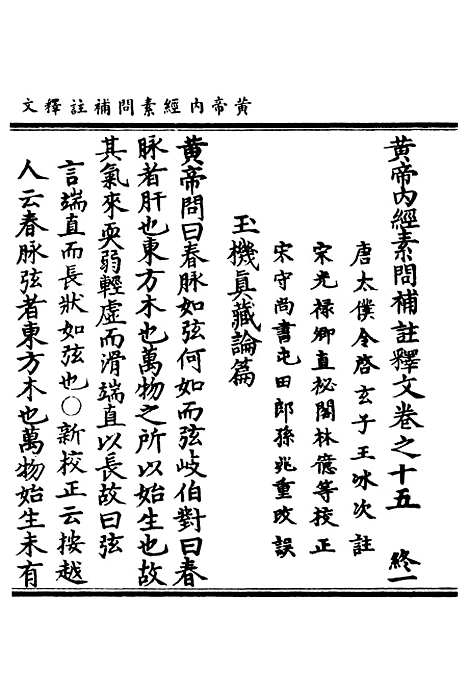 黃帝內經素問補註釋文
黃帝內經素問補註釋文卷之十五 終一
唐太僕令啓玄子王冰次註
宋光祿卿直祕閣林億等校正
宋守尚書屯田郎孫兆重改誤
玉機真藏論篇
黃帝問曰春脉如弦何如而弦岐伯對曰春
脉者肝也東方木也萬物之所以始生也故
其氣來耎弱輕虛而滑端直以長故曰弦
言端直而長狀如弦也○新校正云按越
人云春脉弦者東方木也萬物始生未有